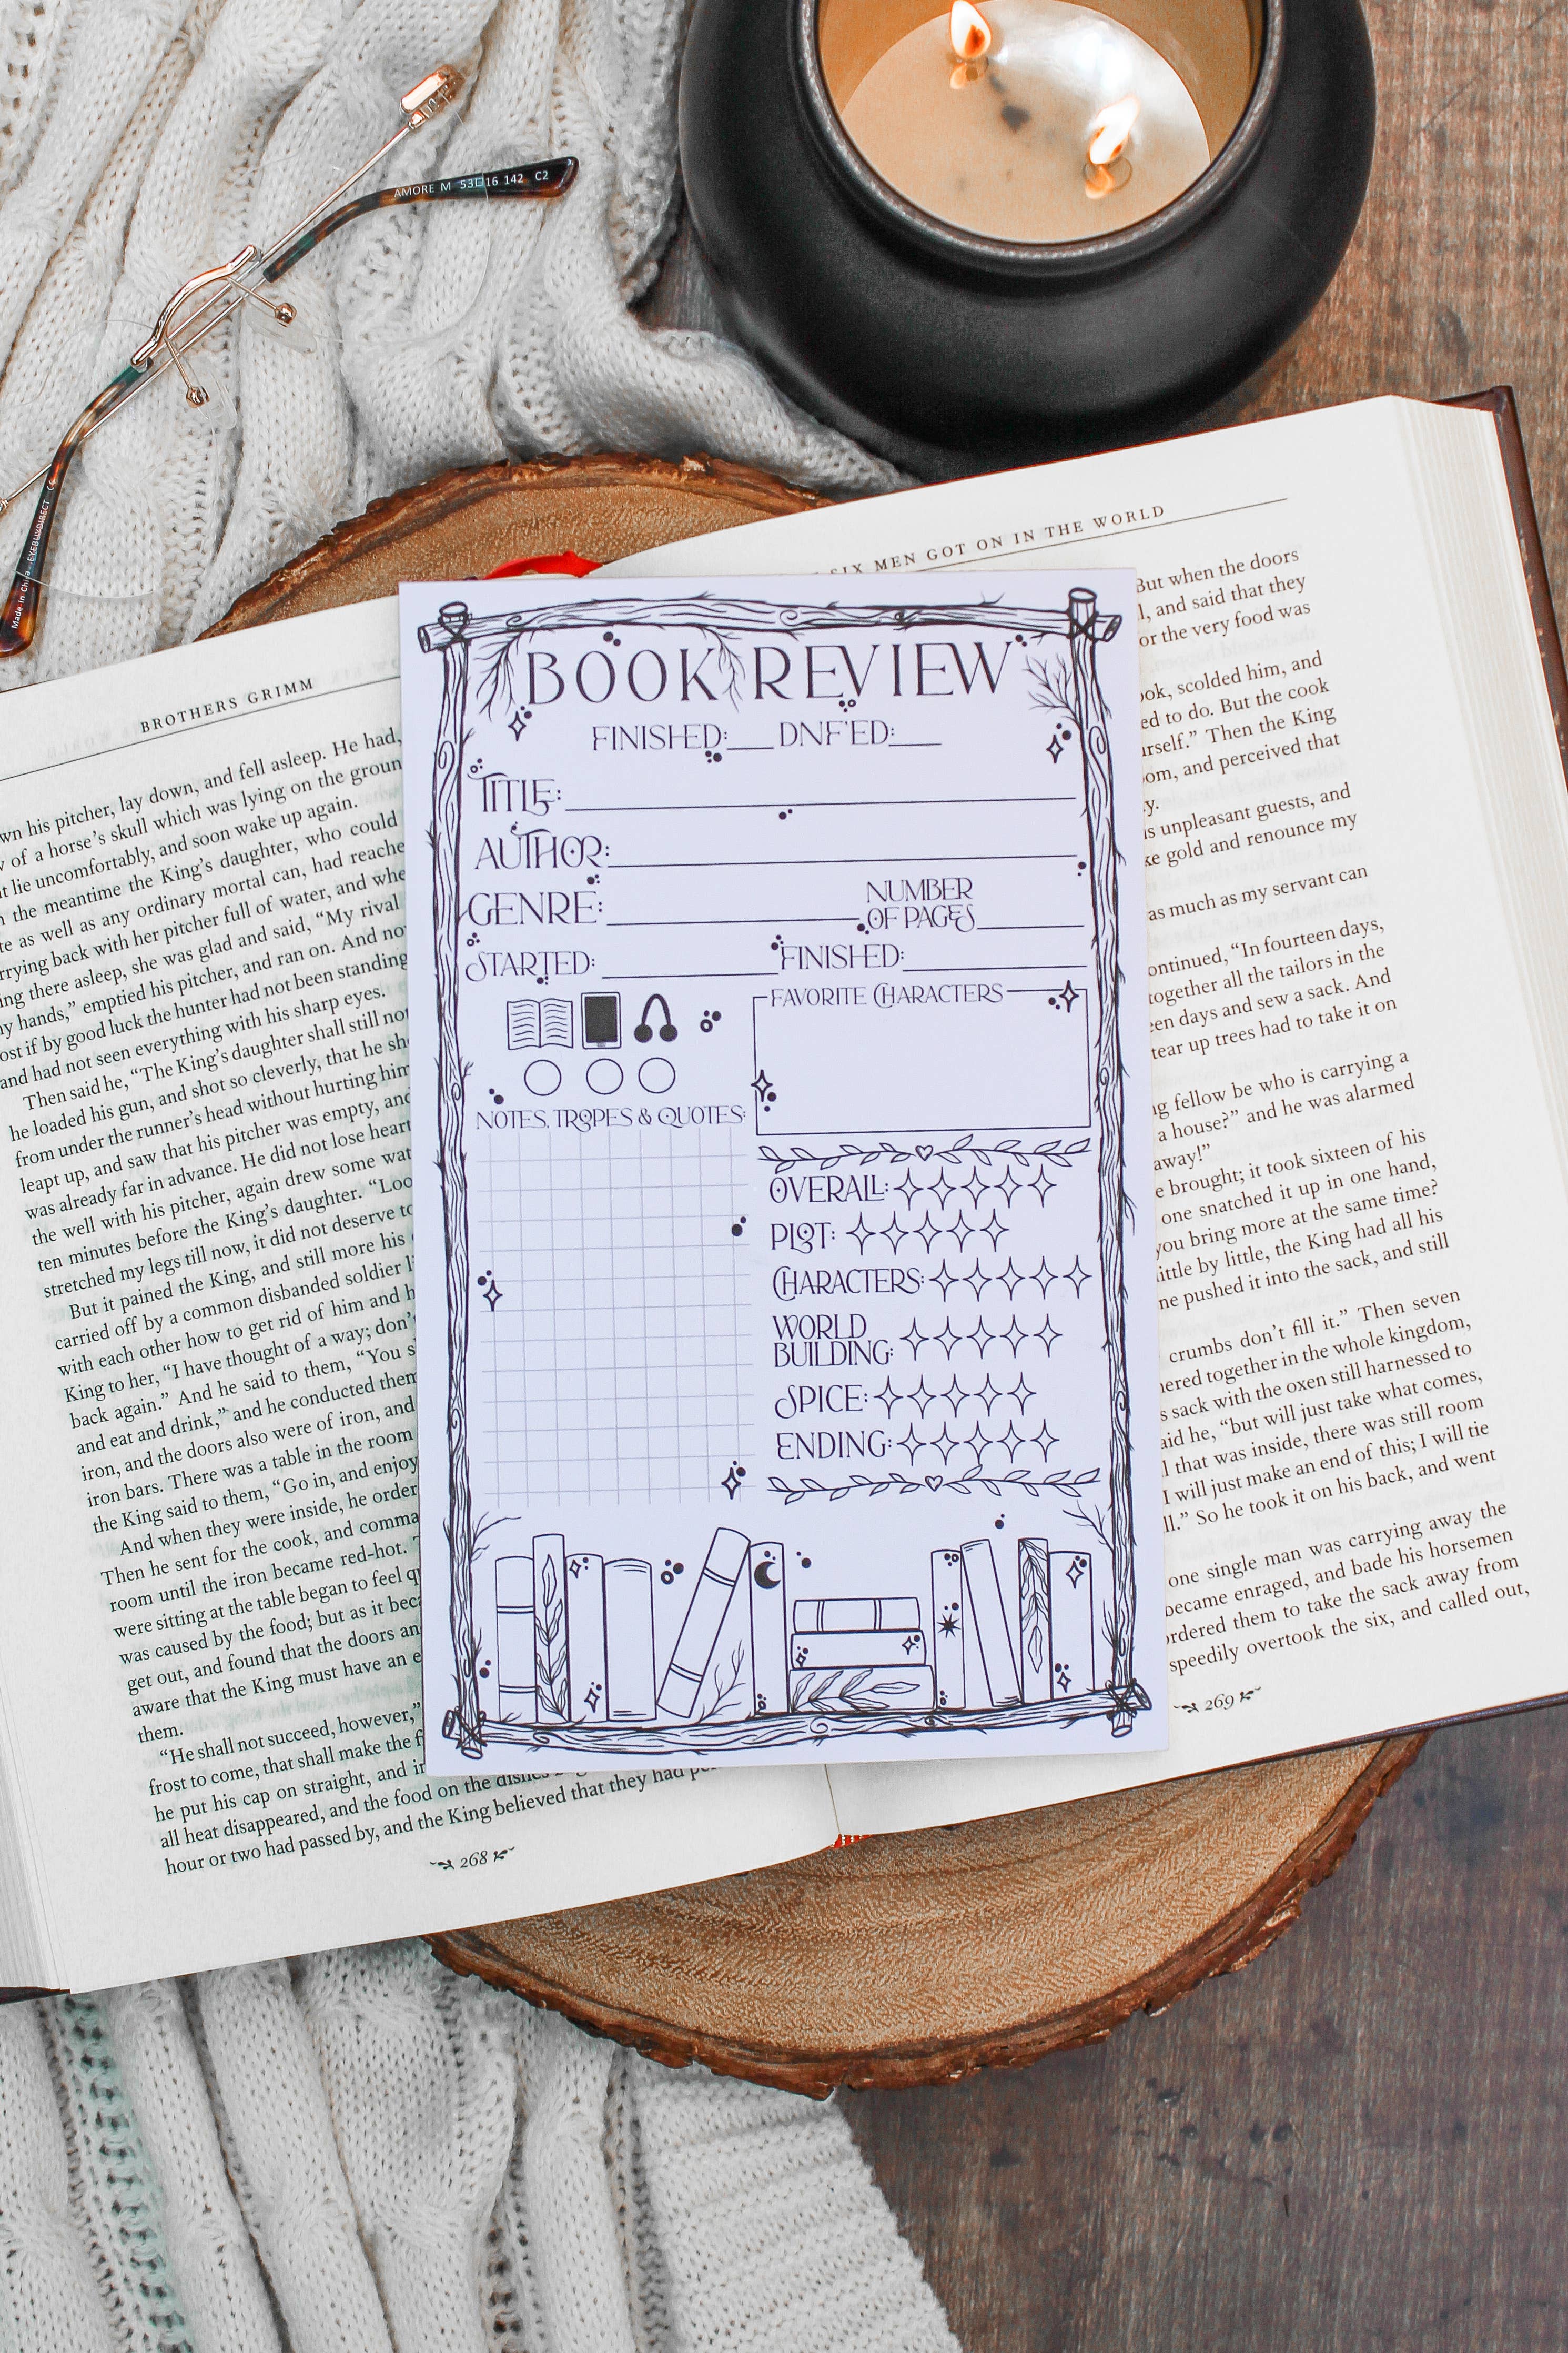 AMORE M 53 16 142 C2
Made in China EYEBUYDIRECT CE
BROTHERS GRIMM
wn his pitcher, lay down, and fell asleep. He had,
of a horse's skull which was lying on the groun
t lie uncomfortably, and soon wake up again.
the meantime the King's daughter, who could
te as well as any ordinary mortal can, had reache
rrying back with her pitcher full of water, and whe
ing there asleep, she was glad and said, “My rival
y hands,” emptied his pitcher, and ran on. And no
ost if by good luck the hunter had not been standing
and had not seen everything with his sharp eyes.
Then said he, “The King's daughter shall still not
he loaded his gun, and shot so cleverly, that he sh
from under the runner's head without hurting him
leapt up, and saw that his pitcher was empty, and
was already far in advance. He did not lose heart
the well with his pitcher, again drew some wat
ten minutes before the King's daughter. “Loo
stretched my legs till now, it did not deserve to
But it pained the King, and still more his
carried off by a common disbanded soldier li
with each other how to get rid of him and h
King to her, “I have thought of a way; don'
back again.” And he said to them, “You s
and eat and drink,” and he conducted them
iron, and the doors also were of iron, and
iron bars. There was a table in the room
the King said to them, “Go in, and enjoy
And when they were inside, he order
Then he sent for the cook, and comma
room until the iron became red-hot. T
were sitting at the table began to feel q
was caused by the food; but as it beca
get out, and found that the doors an
aware that the King must have an e
them.
“He shall not succeed, however,”
frost to come, that shall make the f
he put his cap on straight, and in
all heat disappeared, and the food on the dishes beg
hour or two had passed by, and the King believed that they had pe
268
BOOK REVIEW
FINISHED:___ DNF'ED:___
TITLE:
AUTHOR:
GENRE:
NUMBER
OF PAGES
STARTED:
FINISHED:
FAVORITE CHARACTERS
NOTES, TROPES & QUOTES:
OVERALL:
PLOT:
CHARACTERS:
WORLD
BUILDING:
SPICE:
ENDING:
SIX MEN GOT ON IN THE WORLD
But when the doors
l, and said that they
or the very food was
ook, scolded him, and
ed to do. But the cook
urself.” Then the King
om, and perceived that
y.
s unpleasant guests, and
ke gold and renounce my
as much as my servant can
ontinued, “In fourteen days,
together all the tailors in the
een days and sew a sack. And
tear up trees had to take it on
g fellow be who is carrying a
a house?” and he was alarmed
away!”
e brought; it took sixteen of his
one snatched it up in one hand,
you bring more at the same time?
ittle by little, the King had all his
ne pushed it into the sack, and still
crumbs don't fill it.” Then seven
hered together in the whole kingdom,
s sack with the oxen still harnessed to
aid he, “but will just take what comes,
l that was inside, there was still room
I will just make an end of this; I will tie
ll.” So he took it on his back, and went
one single man was carrying away the
became enraged, and bade his horsemen
ordered them to take the sack away from
speedily overtook the six, and called out,
269